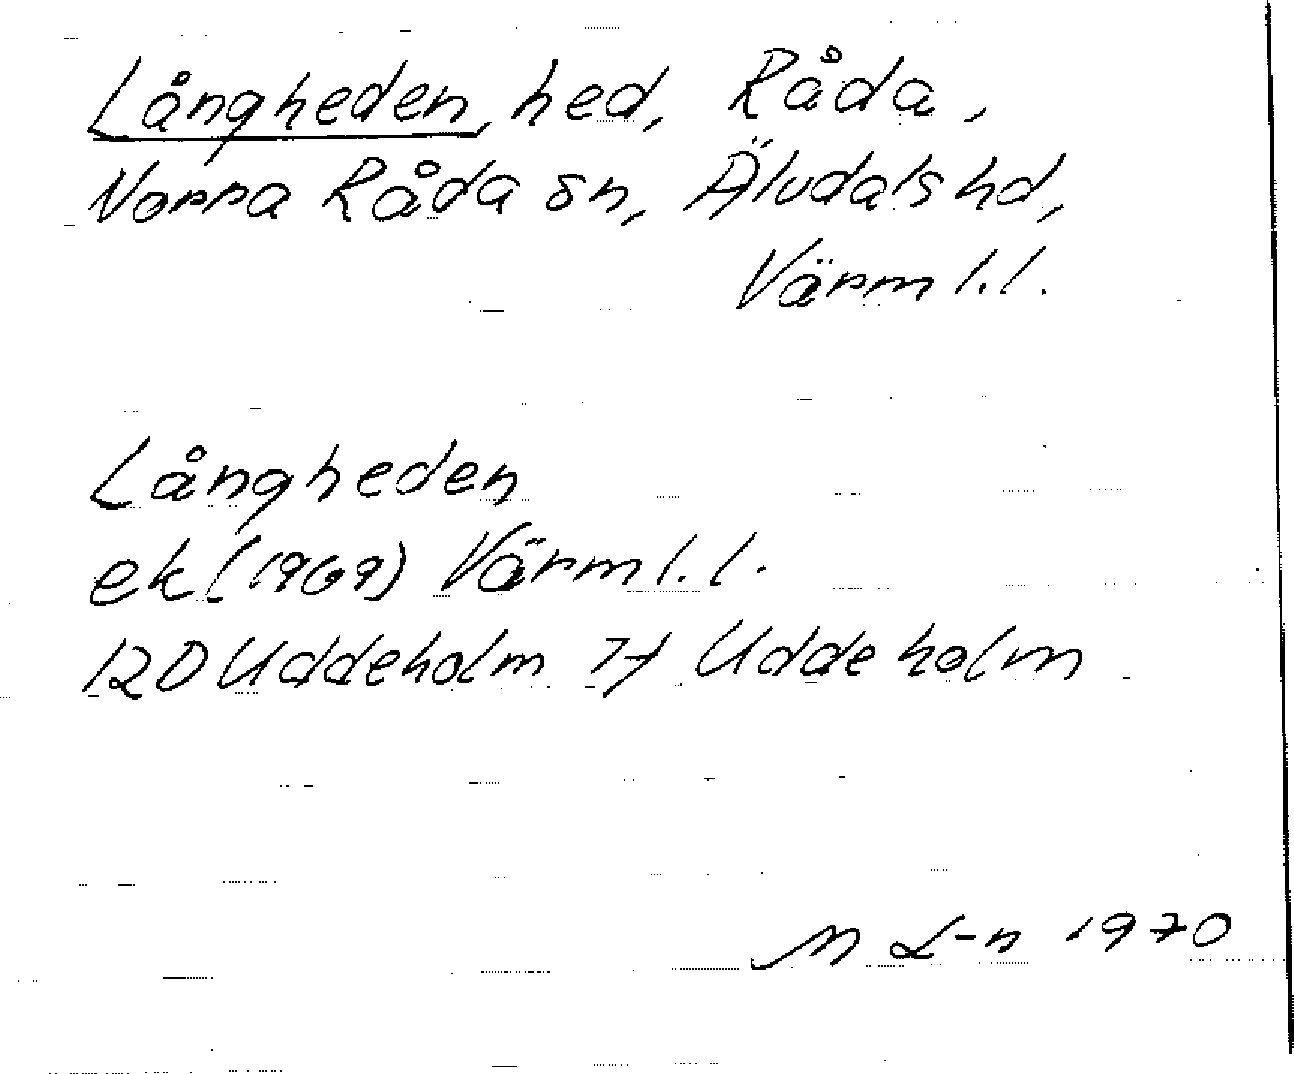 Långheden, hed, Råda,
Norra Råda sn, Älvdals hd,
Värml. l.
Långheden
ek (1969) Värml. l.
12D Uddeholm 7f Uddeholm
M L-n 1970